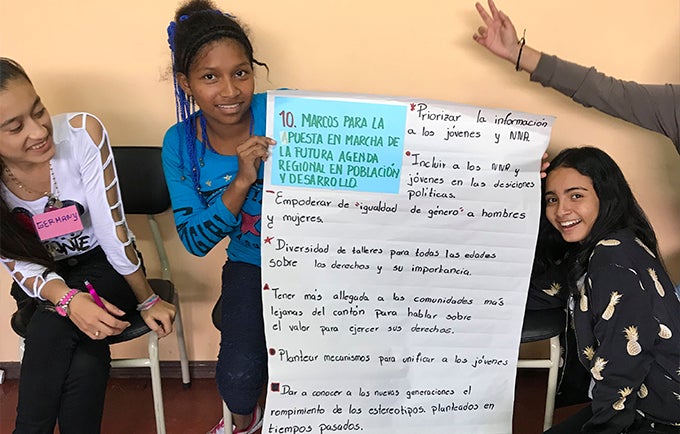 10. MARCOS PARA LA
APUESTA EN MARCHA DE
LA FUTURA AGENDA
REGIONAL EN POBLACIÓN
Y DESARROLLO.
* Priorizar la información
a los jóvenes y NNA.
Incluir a los NNA y
jóvenes en las decisiones
políticas.
- Empoderar de "igualdad de género" a hombres
y mujeres.
* Diversidad de talleres para todas las edades
sobre los derechos y su importancia.
Tener más allegada a las comunidades más
lejanas del cantón para hablar sobre
el valor para ejercer sus derechos.
Plantear mecanismos para unificar a los jóvenes
Dar a conocer a las nuevas generaciones el
rompimiento de los estereotipos, planteados en
tiempos pasados.
GERMANY